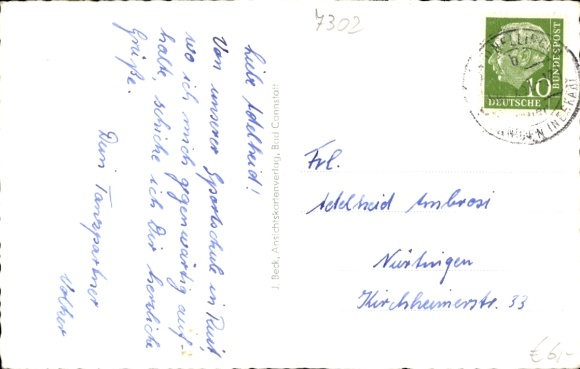 7302
Liebe Adelheid!
Von unserer Sportschule in Ruit
wo ich mich gegenwärtig auf-
halte, schicke ich Dir herzliche
Grüße.
Dein Tanzpartner
Volker
J. Beck, Ansichtskartenverlag, Bad Cannstatt
DEUTSCHE
BUNDESPOST
10
Frl.
Adelheid Ambrosi
Nürtingen
Kirchheimerstr. 33
€6,-